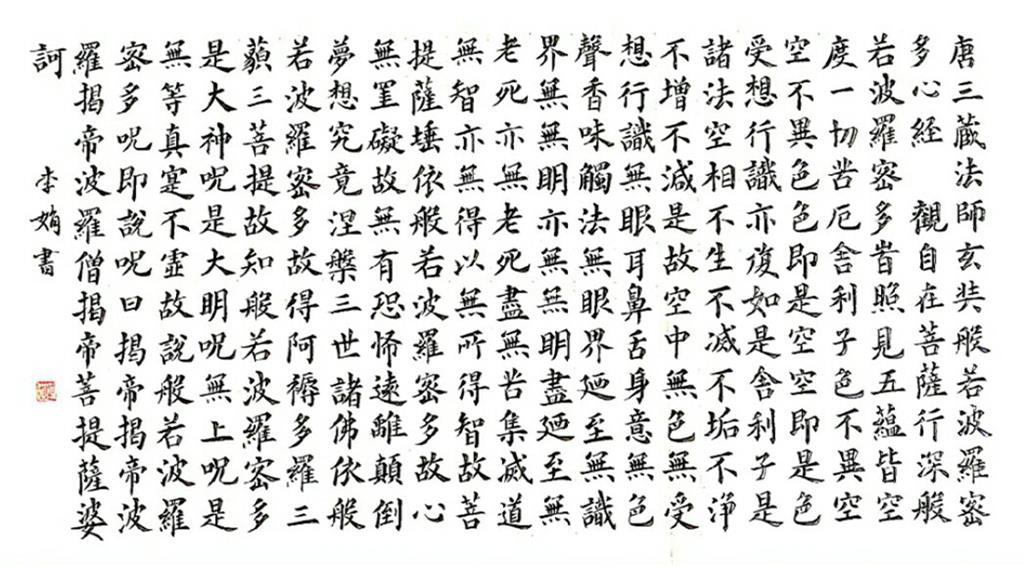 唐三蔵法師玄奘般若波羅密
多心経 觀自在菩薩行深般
若波羅密多旹照見五蘊皆空
度一切苦厄舍利子色不異空
空不異色色即是空空即是色
受想行識亦復如是舍利子是
諸法空相不生不滅不垢不浄
不增不減是故空中無色無受
想行識無眼耳鼻舌身意無色
聲香味觸法無眼界廼至無識
界無無明亦無無明盡廼至無
老死亦無老死盡無苦集滅道
無智亦無得以無所得智故菩
提薩埵依般若波羅密多故心
無罣礙故無有恐怖遠離顛倒
夢想究竟涅槃三世諸佛依般
若波羅密多故得阿耨多羅三
藐三菩提故知般若波羅密多
是大神呪是大明呪無上呪是
無等真寔不虛故說般若波羅
密多呪即說呪曰揭帝揭帝波
羅揭帝波羅僧揭帝菩提薩婆
訶
李娟書